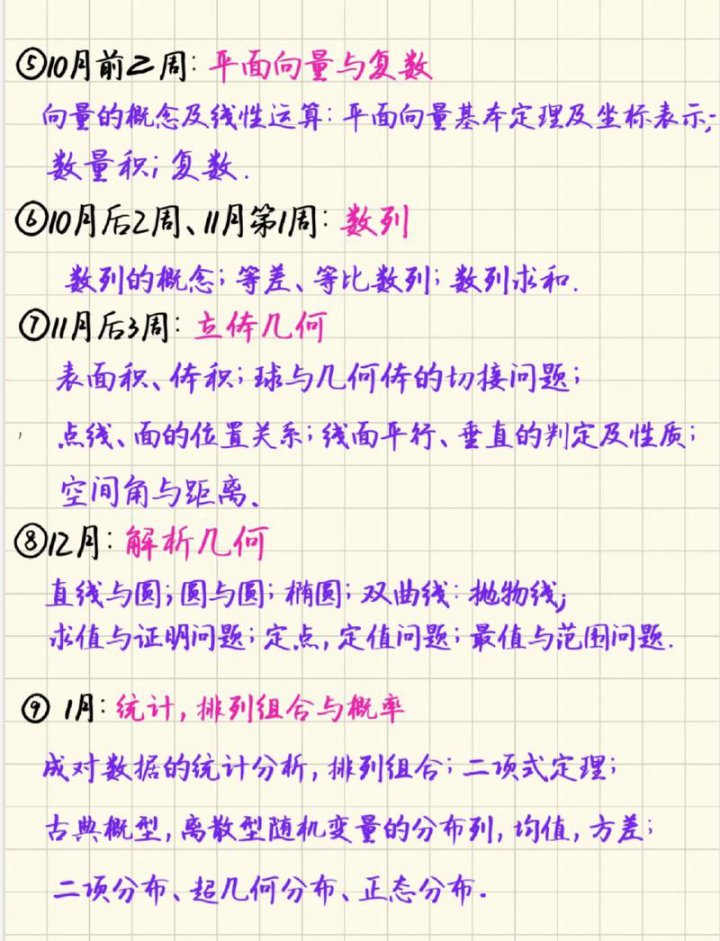 ⑤10月前2周：平面向量与复数
向量的概念及线性运算：平面向量基本定理及坐标表示；
数量积；复数.
⑥10月后2周、11月第1周：数列
数列的概念；等差、等比数列；数列求和.
⑦11月后3周：立体几何
表面积、体积；球与几何体的切接问题；
点线、面的位置关系；线面平行、垂直的判定及性质；
空间角与距离、
⑧12月：解析几何
直线与圆；圆与圆；椭圆；双曲线：抛物线；
求值与证明问题；定点，定值问题；最值与范围问题.
⑨ 1月：统计，排列组合与概率
成对数据的统计分析，排列组合；二项式定理；
古典概型，离散型随机变量的分布列，均值，方差；
二项分布、超几何分布、正态分布.